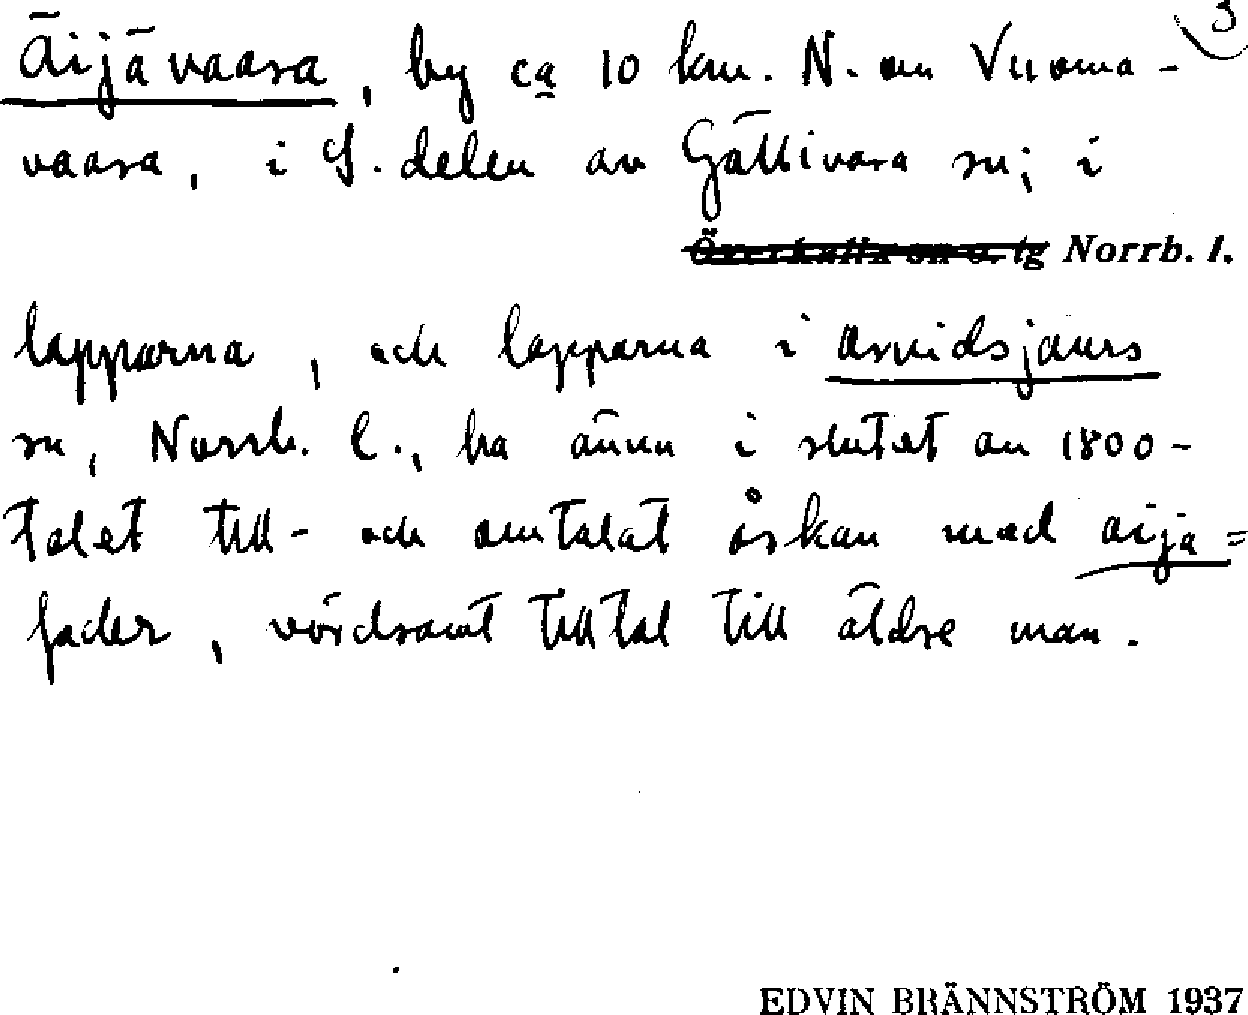 3
Äijävaara, by ca 10 km. N. om Vuoma-
vaara, i S. delen av Gällivara sn; i
Överkalix sn o. tg Norrb. l.
lapparna, och lapparna i Arvidsjaurs
sn, Norrb. l., ha ännu i slutet av 1800-
talet till- och omtalat åskan med aija =
fader, vördsamt tilltal till äldre man.
EDVIN BRÄNNSTRÖM 1937